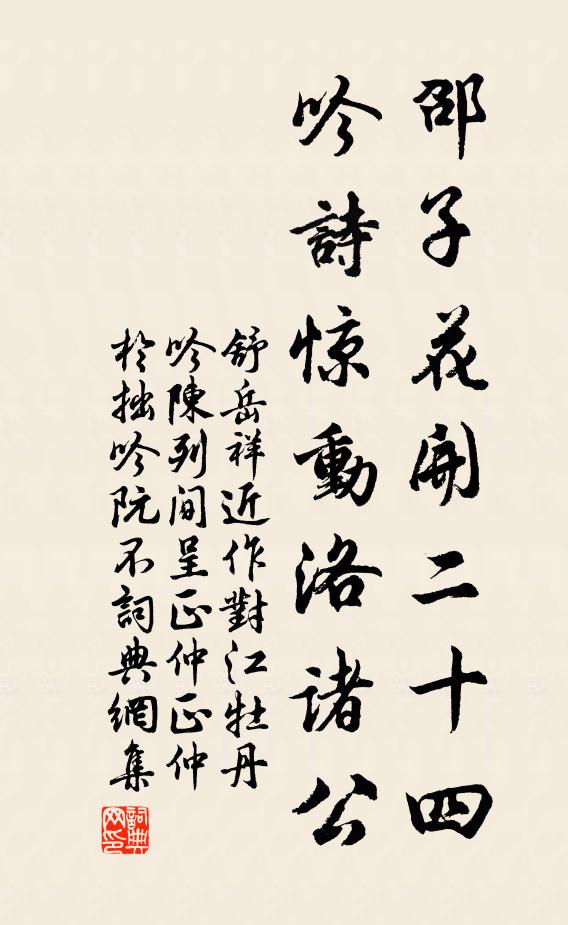 邵子花開二十四
吟詩惊動洛諸公
舒岳祥近作對江牡丹
吟陳列间呈正仲正仲
於拙吟阮不詞典網集
詞典网印